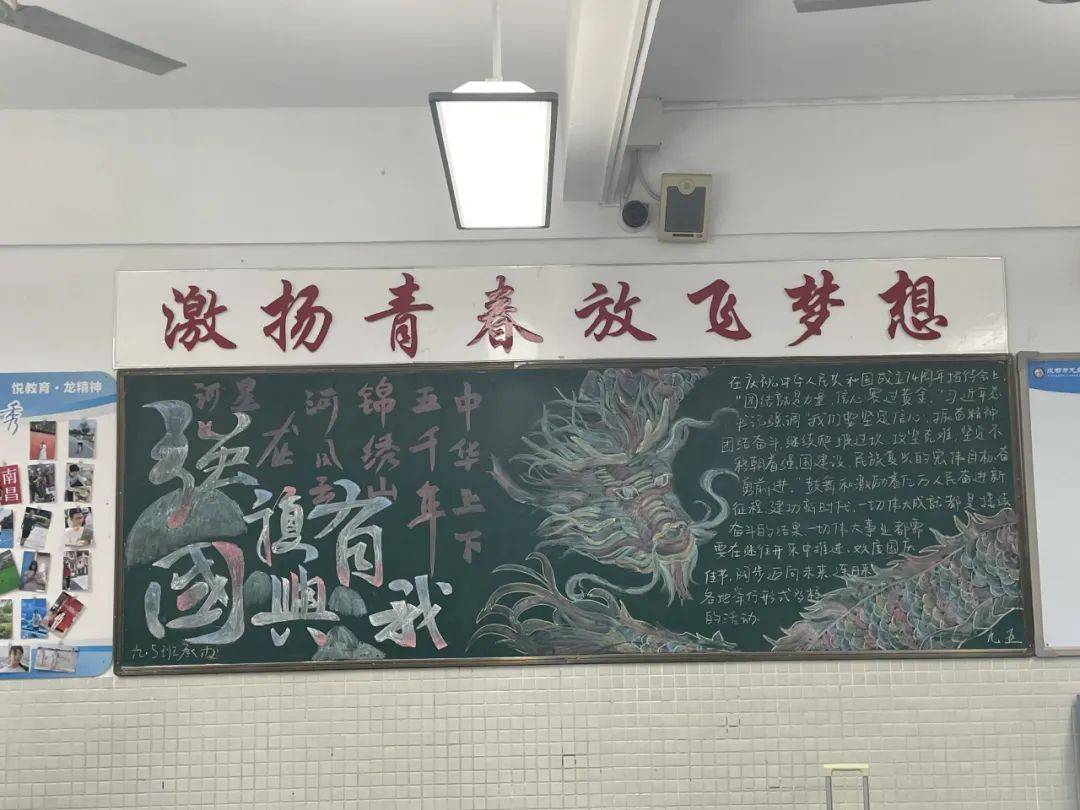 激扬青春放飞梦想
悦教育·龙精神
秀
南昌
中华上下
五千年
锦绣山
河风云
龙
星河
强国
復興
有我
九.5班承办
在庆祝中华人民共和国成立74周年招待会上
“团结就是力量,信心赛过黄金。”习近平总
书记强调“我们要坚定信心、振奋精神
团结奋斗,继续爬坡过坎、攻坚克难,坚定不
移朝着强国建设、民族复兴的宏伟目标奋
勇前进。”鼓舞和激励着亿万人民奋进新
征程、建功新时代。一切伟大成就都是接续
奋斗的结果一切伟大事业都需
要在继往开来中推进、欢度国庆
佳节,阔步迈向未来,连日来
各地举行形式多样
的活动
九五